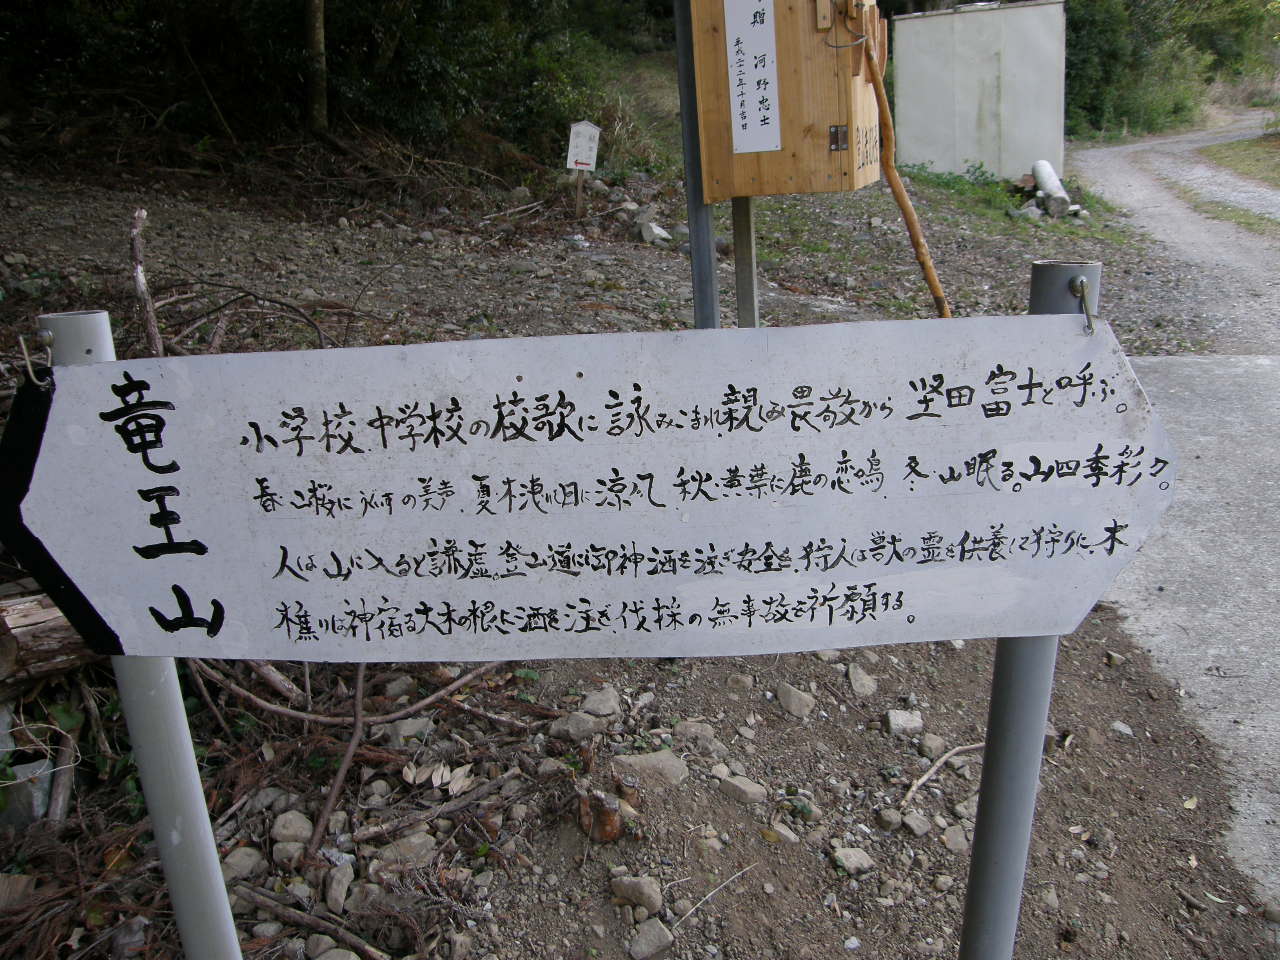 竜王山
小学校、中学校の校歌に詠みこまれ、親しみ畏敬から 堅田富士と呼ぶ。
春、山桜にうぐいすの美声、夏、木洩れ日に涼がて、秋、黄葉に鹿の恋鳴、冬、山眠る。山四季彩々。
人は山に入ると謙虚。登山道に御神酒を注ぎ安全を、狩人は獣の霊を供養して狩りに、木
樵りは神宿る大木の根に酒を注ぎ、伐採の無事故を祈願する。
贈 河野忠士
平成二十二年十月吉日